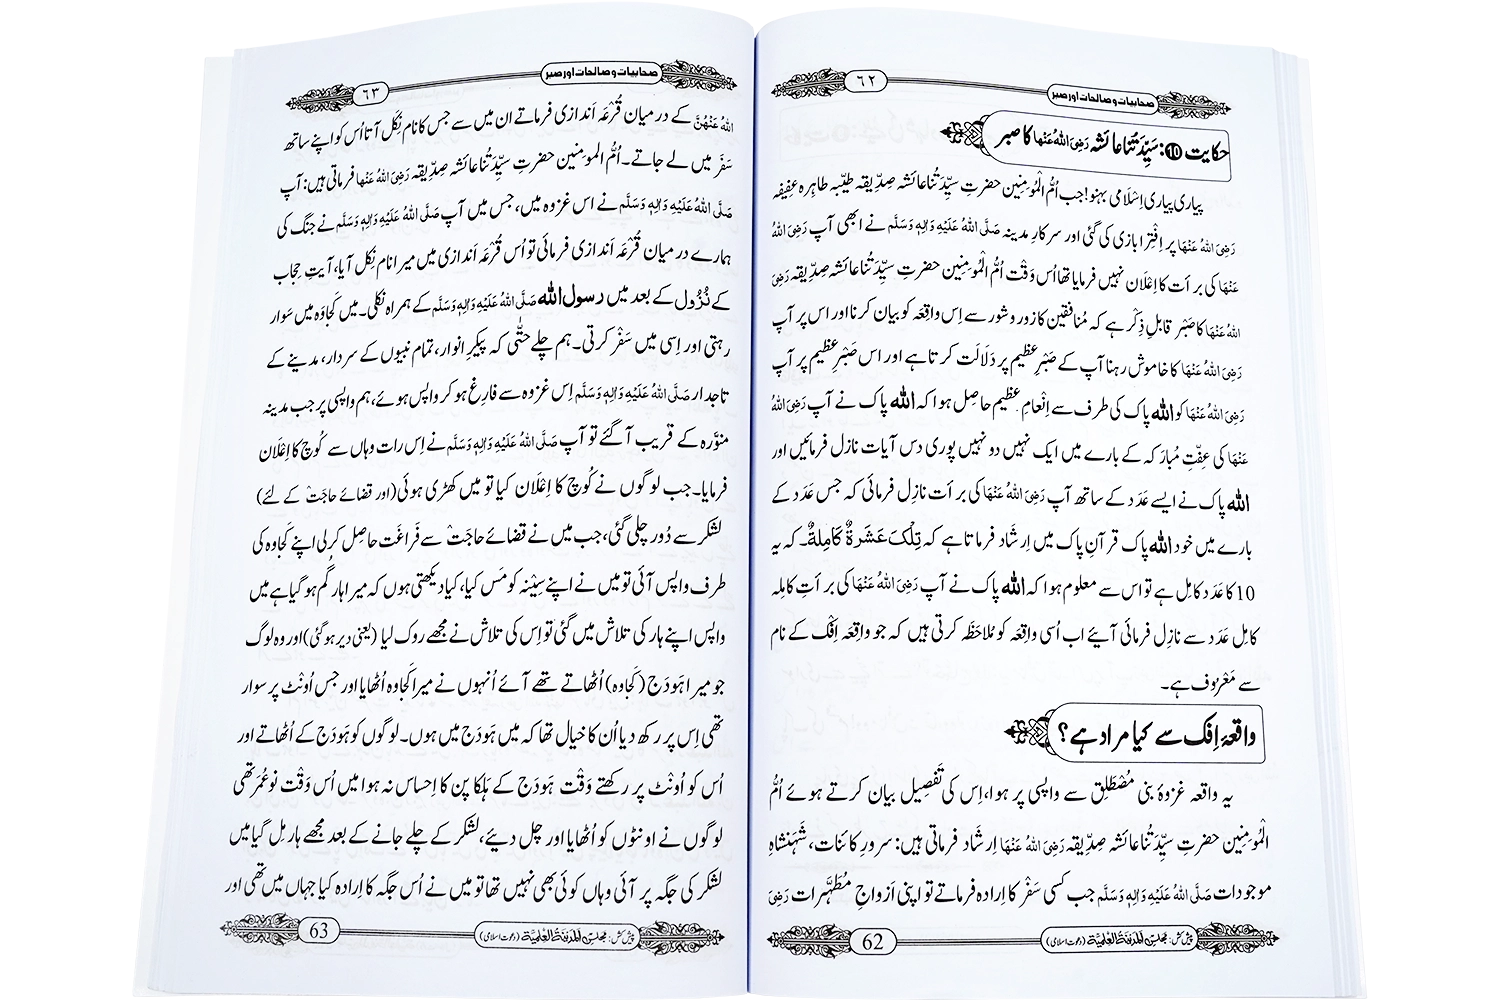 صحابیات و صالحات اور صبر
٦٢
حکایت 10: سَیِّدَتُنا عائشہ رَضِیَ اللہُ عَنْہَا کا صبر
پیاری پیاری اِسْلَامی بہنو! جب اُمُّ الْمُؤمِنین حضرتِ سَیِّدَتُنا عائشہ صِدِّیقہ طیِّبہ طاہِرہ عفِیفہ
رَضِیَ اللہُ عَنْہَا پر اِفْتِرا بازی کی گئی اور سرکارِ مدینہ صَلَّی اللہُ عَلَیْہِ وَاٰلِہٖ وَسَلَّم نے ابھی آپ رَضِیَ اللہُ
عَنْہَا کی براَت کا اِعْلان نہیں فرمایا تھا اُس وَقْت اُمُّ الْمُؤمِنین حضرتِ سَیِّدَتُنا عائشہ صِدِّیقہ رَضِیَ
اللہُ عَنْہَا کا صَبْر قابلِ ذِکْر ہے کہ مُنافقین کا زور و شور سے اِس واقِعہ کو بیان کرنا اور اس پر آپ
رَضِیَ اللہُ عَنْہَا کا خاموش رہنا آپ کے صَبْرِ عظیم پر دَلَالَت کرتا ہے اور اس صَبْرِ عظیم پر آپ
رَضِیَ اللہُ عَنْہَا کو اللہ پاک کی طرف سے اِنْعامِ عظیم حاصِل ہوا کہ اللہ پاک نے آپ رَضِیَ اللہُ
عَنْہَا کی عِفَّتِ مُبارَکہ کے بارے میں ایک نہیں دو نہیں پوری دس آیات نازل فرمائیں اور
اللہ پاک نے ایسے عَدَد کے ساتھ آپ رَضِیَ اللہُ عَنْہَا کی براَت نازِل فرمائی کہ جس عَدَد کے
بارے میں خود اللہ پاک قرآنِ پاک میں اِرشَاد فرماتا ہے کہ تِلْکَ عَشَرَةٌ کَامِلَةٌ۔ کہ یہ
10 کا عَدَد کامِل ہے تو اس سے معلوم ہوا کہ اللہ پاک نے آپ رَضِیَ اللہُ عَنْہَا کی براَتِ کامِلہ
کامِل عَدَد سے نازِل فرمائی آیئے اب اُسی واقِعہ کو مُلاحَظَہ کرتی ہیں کہ جو واقِعہ اِفْک کے نام
سے مَعْرُوف ہے۔
واقعۂ اِفْک سے کیا مراد ہے؟
یہ واقعہ غزوۂ بنی مُصْطَلِق سے واپسی پر ہوا، اِس کی تَفْصِیل بیان کرتے ہوئے اُمُّ
الْمُؤمِنین حضرتِ سَیِّدَتُنا عائشہ صِدِّیقہ رَضِیَ اللہُ عَنْہَا اِرشَاد فرماتی ہیں: سرورِ کائنات، شَہَنْشاہِ
موجودات صَلَّی اللہُ عَلَیْہِ وَاٰلِہٖ وَسَلَّم جب کسی سَفَر کا اِرادہ فرماتے تو اپنی اَزواجِ مُطَہَّرات رَضِیَ
پیش کش: مجلس المدینۃ العلمیۃ (دعوتِ اسلامی)
62
صحابیات و صالحات اور صبر
٦٣
اللہُ عَنْہُنَّ کے درمیان قُرْعَہ اَندازی فرماتے ان میں سے جس کا نام نِکَل آتا اُس کو اپنے ساتھ
سَفَر میں لے جاتے۔ اُمُّ المومنین حضرتِ سَیِّدَتُنا عائشہ صِدِّیقہ رَضِیَ اللہُ عَنْہَا فرماتی ہیں: آپ
صَلَّی اللہُ عَلَیْہِ وَاٰلِہٖ وَسَلَّم نے اس غزوہ میں، جس میں آپ صَلَّی اللہُ عَلَیْہِ وَاٰلِہٖ وَسَلَّم نے جنگ کی
ہمارے درمیان قُرْعَہ اَندازی فرمائی تو اُس قُرْعَہ اَندازی میں میرا نام نِکَل آیا، آیتِ حِجاب
کے نُزُول کے بعد میں رسول اللہ صَلَّی اللہُ عَلَیْہِ وَاٰلِہٖ وَسَلَّم کے ہمراہ نکلی۔ میں کَجَاوَہ میں سَوار
رہتی اور اِسی میں سَفَر کرتی۔ ہم چلے حتّٰی کہ پیکرِ انوار، تمام نبیوں کے سردار، مدینے کے
تاجدار صَلَّی اللہُ عَلَیْہِ وَاٰلِہٖ وَسَلَّم اِس غزوہ سے فارِغ ہو کر واپس ہوئے، ہم واپسی پر جب مدینہ
منوَّرہ کے قریب آگئے تو آپ صَلَّی اللہُ عَلَیْہِ وَاٰلِہٖ وَسَلَّم نے اِس رات وہاں سے کُوچ کا اِعْلان
فرمایا۔ جب لوگوں نے کُوچ کا اِعْلان کیا تو میں کھڑی ہوئی (اور قضائے حاجَت کے لئے)
لشکر سے دُور چلی گئی، جب میں نے قضائے حاجَت سے فَراغَت حاصِل کر لی اپنے کَجاوہ کی
طرف واپس آئی تو میں نے اپنے سِیْنَہ کو مَس کیا، کیا دیکھتی ہوں کہ میرا ہار گُم ہو گیا ہے میں
واپس اپنے ہار کی تلاش میں گئی تو اِس کی تلاش نے مجھے روک لیا (یعنی دیر ہو گئی) اور وہ لوگ
جو میرا ہَودَج (کَجاوہ) اُٹھاتے تھے آئے اُنہوں نے میرا کَجاوہ اُٹھایا اور جس اُونْٹ پر سوار
تھی اِس پر رکھ دیا اُن کا خیال تھا کہ میں ہَودَج میں ہوں۔ لوگوں کو ہَودَج کے اُٹھاتے اور
اُس کو اُونْٹ پر رکھتے وَقْت ہَودَج کے ہَلکا پن کا اِحساس نہ ہوا میں اُس وَقْت نو عُمَر تھی
لوگوں نے اونٹوں کو اُٹھایا اور چل دیئے، لشکر کے چلے جانے کے بعد مجھے ہار مل گیا میں
لشکر کی جگہ پر آئی وہاں کوئی بھی نہیں تھا تو میں نے اُس جگہ کا اِرادہ کیا جہاں میں تھی اور
پیش کش: مجلس المدینۃ العلمیۃ (دعوتِ اسلامی)
63